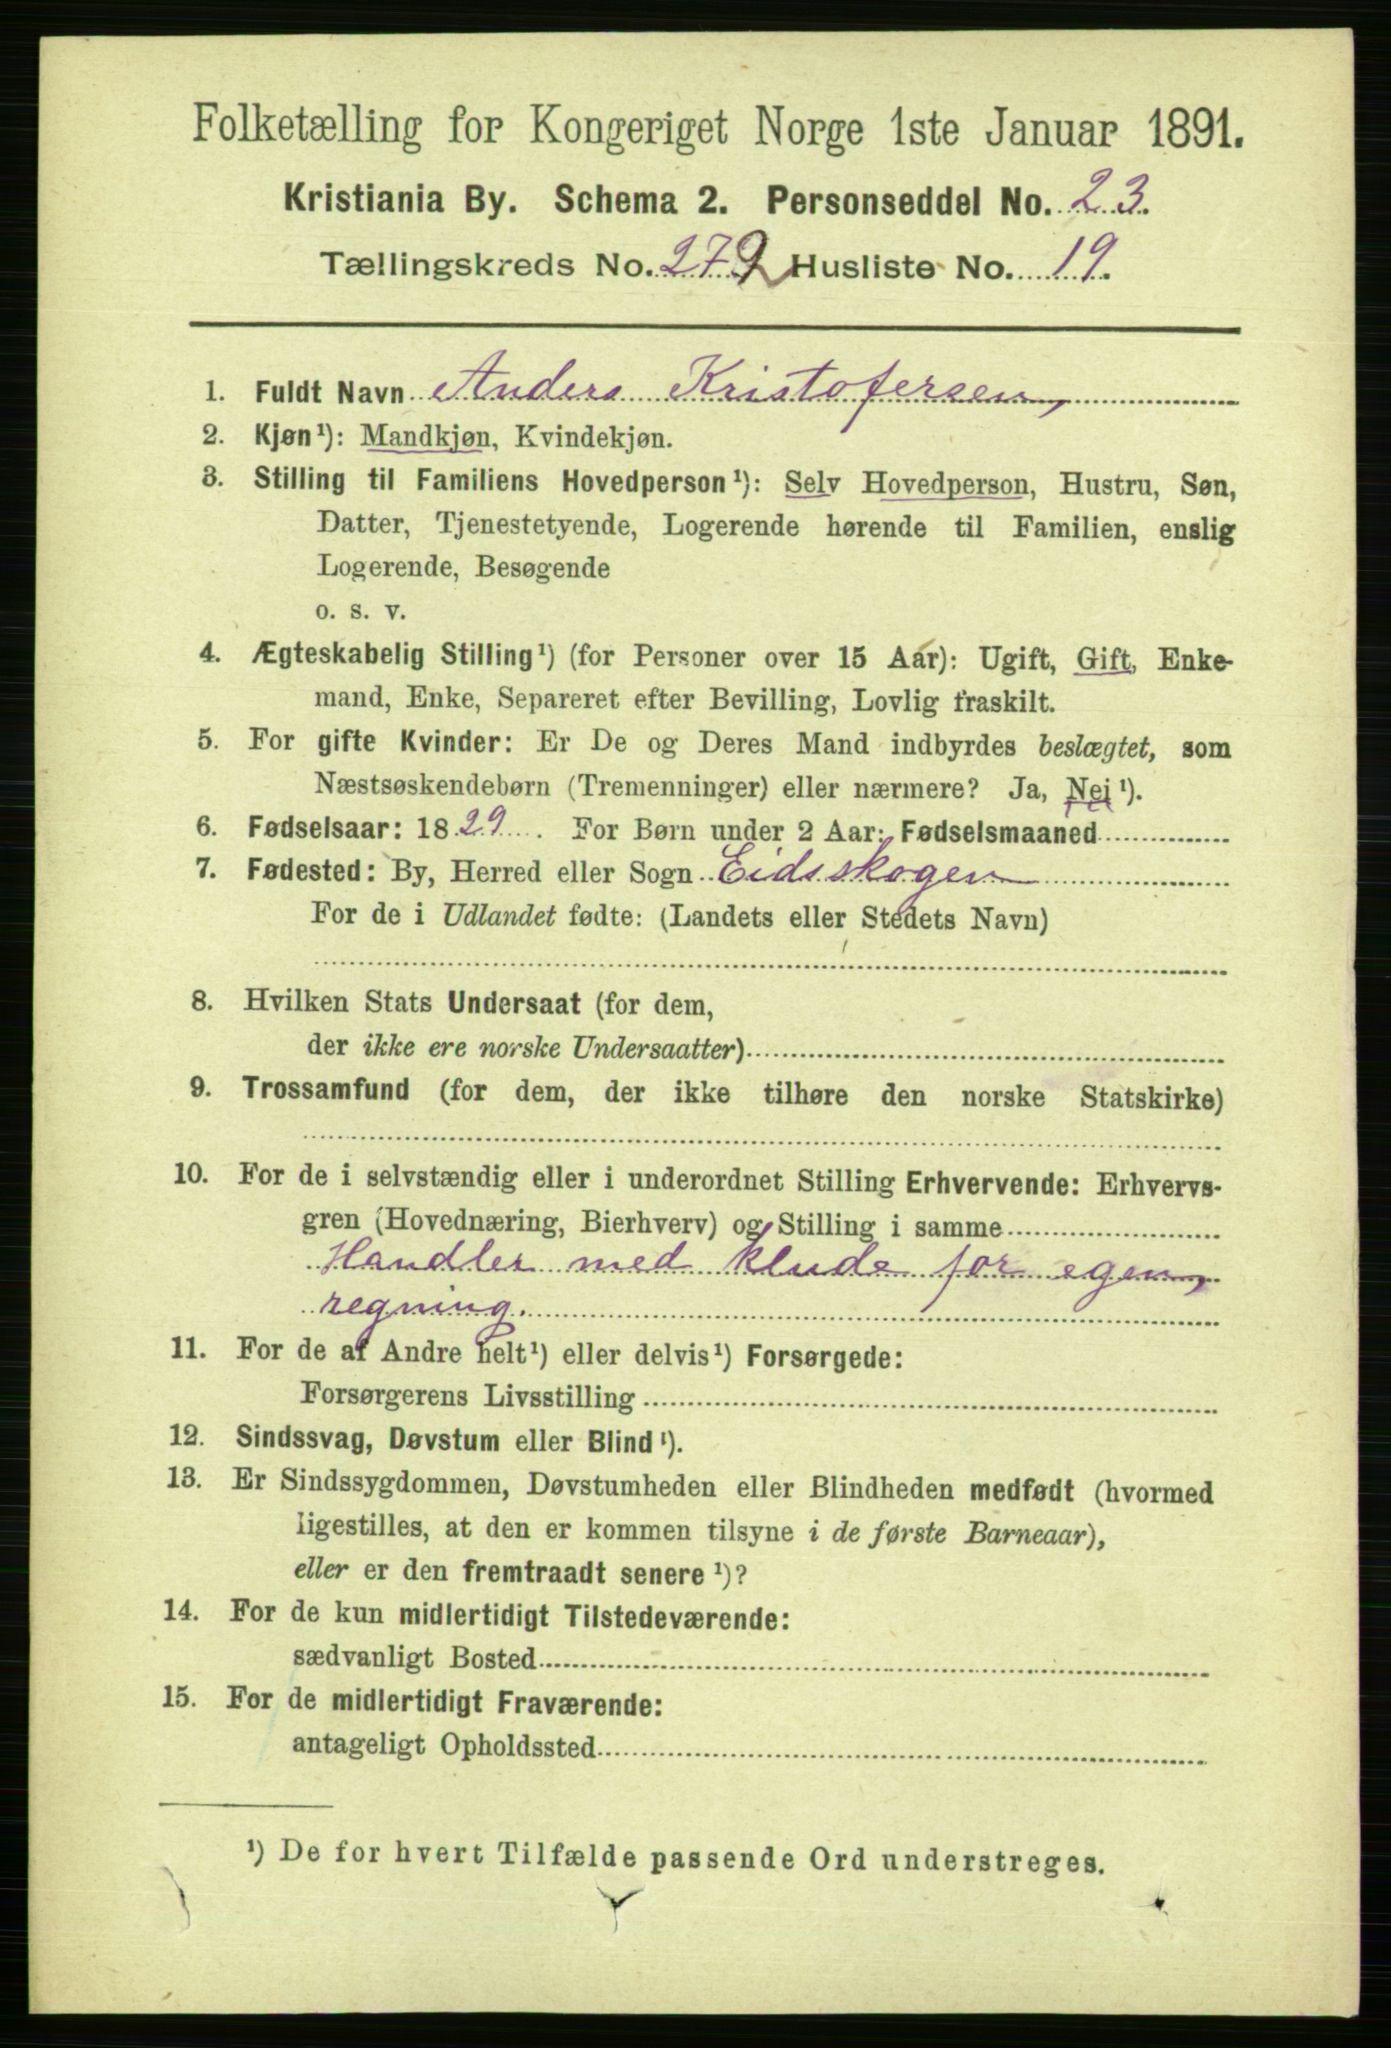 Folketælling for Kongeriget Norge 1ste Januar 1891.
Kristiania By. Schema 2. Personseddel No. 23.
Tællingskreds No. 279 Husliste No. 19.
1. Fuldt Navn Anders Kristofersen,
2. Kjøn¹): Mandkjøn, Kvindekjøn.
3. Stilling til Familiens Hovedperson¹): Selv Hovedperson, Hustru, Søn,
Datter, Tjenestetyende, Logerende hørende til Familien, enslig
Logerende, Besøgende
o. s. v.
4. Ægteskabelig Stilling¹) (for Personer over 15 Aar): Ugift, Gift, Enke-
mand, Enke, Separeret efter Bevilling, Lovlig fraskilt.
5. For gifte Kvinder: Er De og Deres Mand indbyrdes beslægtet, som
Næstsøskendebørn (Tremenninger) eller nærmere? Ja, Nei¹).
6. Fødselsaar: 1829. For Børn under 2 Aar: Fødselsmaaned
7. Fødested: By, Herred eller Sogn Eidsskogen
For de i Udlandet fødte: (Landets eller Stedets Navn)
8. Hvilken Stats Undersaat (for dem,
der ikke ere norske Undersaatter)
9. Trossamfund (for dem, der ikke tilhøre den norske Statskirke)
10. For de i selvstændig eller i underordnet Stilling Erhvervende: Erhvervs-
gren (Hovednæring, Bierhverv) og Stilling i samme
Handler med klude for egen,
regning.
11. For de af Andre helt¹) eller delvis¹) Forsørgede:
Forsørgerens Livsstilling
12. Sindssvag, Døvstum eller Blind¹).
13. Er Sindssygdommen, Døvstumheden eller Blindheden medfødt (hvormed
ligestilles, at den er kommen tilsyne i de første Barneaar),
eller er den fremtraadt senere¹)?
14. For de kun midlertidigt Tilstedeværende:
sædvanligt Bosted
15. For de midlertidigt Fraværende:
antageligt Opholdssted
¹) De for hvert Tilfælde passende Ord understreges.